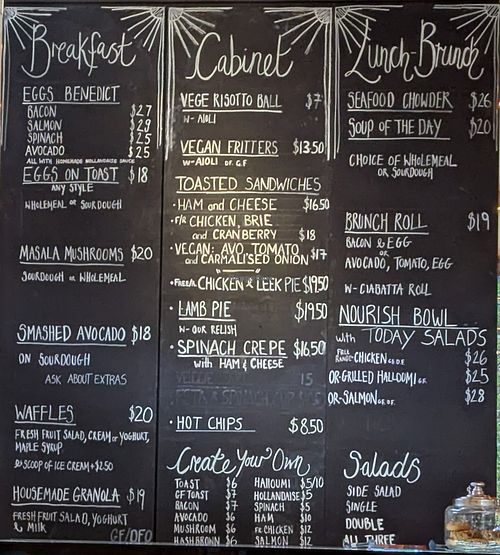 Breakfast
EGGS BENEDICT
BACON $27
SALMON $28
SPINACH $25
AVOCADO $25
ALL WITH HOMEMADE HOLLANDAISE SAUCE
EGGS ON TOAST $18
ANY STYLE
WHOLEMEAL OR SOURDOUGH
MASALA MUSHROOMS $20
SOURDOUGH OR WHOLEMEAL
SMASHED AVOCADO $18
ON SOURDOUGH
ASK ABOUT EXTRAS
WAFFLES $20
FRESH FRUIT SALAD, CREAM OR YOGHURT,
MAPLE SYRUP
SCOOP OF ICE CREAM +$2.50
HOUSEMADE GRANOLA $19
FRESH FRUIT SALAD, YOGHURT
& MILK
GF/DFO
Cabinet
VEGE RISOTTO BALL $7
W- AIOLI
VEGAN FRITTERS $13.50
W-AIOLI DF. GF
TOASTED SANDWICHES
• HAM and CHEESE $16.50
• F/R CHICKEN, BRIE
and CRANBERRY $18
• VEGAN: AVO, TOMATO
and CARMALISED ONION $17
• FREE/R CHICKEN & LEEK PIE $19.50
• LAMB PIE $19.50
W- OUR RELISH
• SPINACH CREPE $16.50
with HAM & CHEESE
• HOT CHIPS $8.50
Create Your Own
TOAST $6
GF TOAST $7
BACON $7
AVOCADO $6
MUSHROOM $6
HASHBROWN $6
HALLOUMI $5/10
HOLLANDAISE $5
SPINACH $5
HAM $10
FR CHICKEN $12
SALMON $12
Lunch-Brunch
SEAFOOD CHOWDER $26
SOUP OF THE DAY $20
CHOICE OF WHOLEMEAL
OR SOURDOUGH
BRUNCH ROLL $19
BACON & EGG
OR
AVOCADO, TOMATO, EGG
W- CIABATTA ROLL
NOURISH BOWL
with TODAY SALADS
FREE RANGE-CHICKEN GF.DF $26
OR-GRILLED HALLOUMI GF. $25
OR-SALMON GF.DF. $28
Salads
SIDE SALAD
SINGLE
DOUBLE
ALL THREE